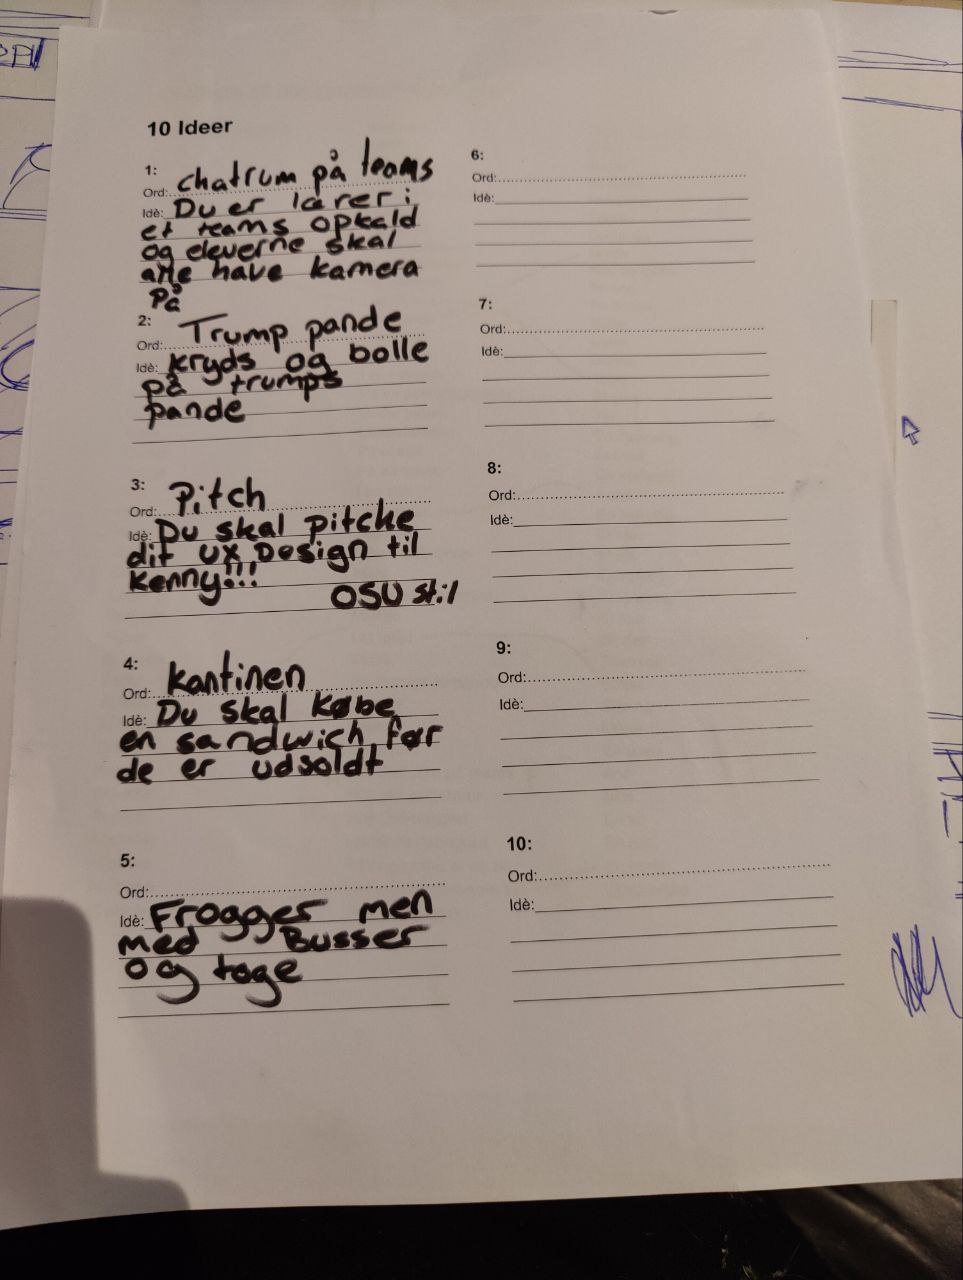 10 Ideer
1:
Ord: chatrum på teams
Idè: Du er lærer i
et teams opkald
og eleverne skal
alle have kamera
På
2:
Ord: Trump pande
Idè: kryds og bolle
på trumps
pande
3:
Ord: Pitch
Idè: Du skal pitche
dit UX Design til
Kenny!!!
OSU stil
4:
Ord: Kantinen
Idè: Du skal købe
en sandwich før
de er udsoldt
5:
Ord:
Idè: Frogger men
med Busser
og toge
6:
Ord:
Idè:
7:
Ord:
Idè:
8:
Ord:
Idè:
9:
Ord:
Idè:
10:
Ord:
Idè: